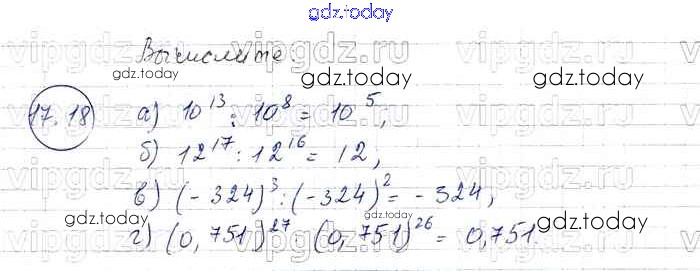 gdz.today
Вычислите.
vipgdz.ru vipgdz.ru
gdz.today gdz.today
17.18 а) 10^13 : 10^8 = 10^5,
б) 12^17 : 12^16 = 12,
vipgdz.ru vipgdz.ru
в) (-324)^3 : (-324)^2 = -324,
gdz.today gdz.today gdz.today
г) (0,751)^27 (0,751)^26 = 0,751.
vipgdz.ru vipgdz.ru